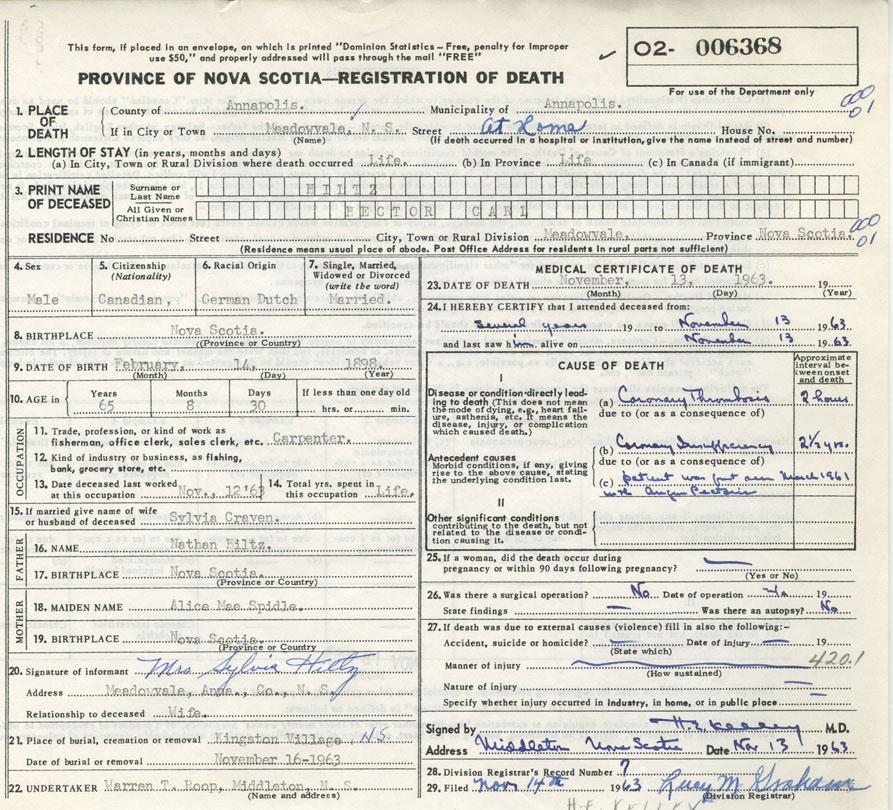 This form, if placed in an envelope, on which is printed "Dominion Statistics—Free, penalty for improper
use $50," and properly addressed will pass through the mail "FREE"
PROVINCE OF NOVA SCOTIA—REGISTRATION OF DEATH
O2- 006368
For use of the Department only
1. PLACE OF DEATH
County of Annapolis. Municipality of Annapolis.
000
01
If in City or Town Meadowvale, N. S. Street At Home House No.
(Name) (If death occurred in a hospital or institution, give the name instead of street and number)
2. LENGTH OF STAY (in years, months and days)
(a) In City, Town or Rural Division where death occurred Life. (b) In Province Life (c) In Canada (if immigrant)
3. PRINT NAME OF DECEASED
Surname or Last Name HILTZ
All Given or Christian Names HECTOR CARL
000
01
RESIDENCE No Street City, Town or Rural Division Meadowvale. Province Nova Scotia.
(Residence means usual place of abode. Post Office Address for residents in rural parts not sufficient)
4. Sex
Male
5. Citizenship (Nationality)
Canadian,
6. Racial Origin
German Dutch
7. Single, Married, Widowed or Divorced (write the word)
Married.
8. BIRTHPLACE Nova Scotia.
(Province or Country)
9. DATE OF BIRTH February, 14, 1898.
(Month) (Day) (Year)
10. AGE in
Years 65
Months 8
Days 30
If less than one day old
hrs. or min.
OCCUPATION
11. Trade, profession, or kind of work as
fisherman, office clerk, sales clerk, etc. Carpenter.
12. Kind of industry or business, as fishing,
bank, grocery store, etc.
13. Date deceased last worked
at this occupation Nov., 12'63
14. Total yrs. spent in
this occupation Life.
15. If married give name of wife
or husband of deceased Sylvia Craven.
FATHER
16. NAME Nathan Hiltz.
17. BIRTHPLACE Nova Scotia.
(Province or Country)
MOTHER
18. MAIDEN NAME Alice Mae Spidle.
19. BIRTHPLACE Nova Scotia.
(Province or Country)
20. Signature of informant Mrs Sylvia Hiltz
Address Meadowvale, Anna., Co., N. S.
Relationship to deceased Wife.
21. Place of burial, cremation or removal Kingston Village N.S.
Date of burial or removal November 16-1963
22. UNDERTAKER Warren T. Roop, Middleton, N. S.
(Name and address)
MEDICAL CERTIFICATE OF DEATH
23. DATE OF DEATH November, 13, 1963. 19
(Month) (Day) (Year)
24. I HEREBY CERTIFY that I attended deceased from:
Several years 19 to November 13 1963
and last saw him alive on November 13 1963
CAUSE OF DEATH
Approximate interval between onset and death
I
Disease or condition directly leading to death (This does not mean the mode of dying, e.g., heart failure, asthenia, etc. It means the disease, injury, or complication which caused death.)
(a) Coronary Thrombosis 2 hours
due to (or as a consequence of)
Antecedent causes
Morbid conditions, if any, giving rise to the above cause, stating the underlying condition last.
(b) Coronary Insufficiency 2 1/2 yrs.
due to (or as a consequence of)
(c) patient was first seen March 1961
with Angina Pectoris
II
Other significant conditions
contributing to the death, but not related to the disease or condition causing it.
25. If a woman, did the death occur during
pregnancy or within 90 days following pregnancy? —
(Yes or No)
26. Was there a surgical operation? No Date of operation n/a 19
State findings — Was there an autopsy? No
27. If death was due to external causes (violence) fill in also the following:-
Accident, suicide or homicide? — Date of Injury — 19
(State which)
Manner of injury 420.1
(How sustained)
Nature of injury —
Specify whether injury occurred in industry, in home, or in public place —
Signed by H E Kelley M.D.
Address Middleton Nova Scotia Date Nov 13 1963
28. Division Registrar's Record Number 7
29. Filed Nov 14th 1963 Lucy M. Graham
(Division Registrar)